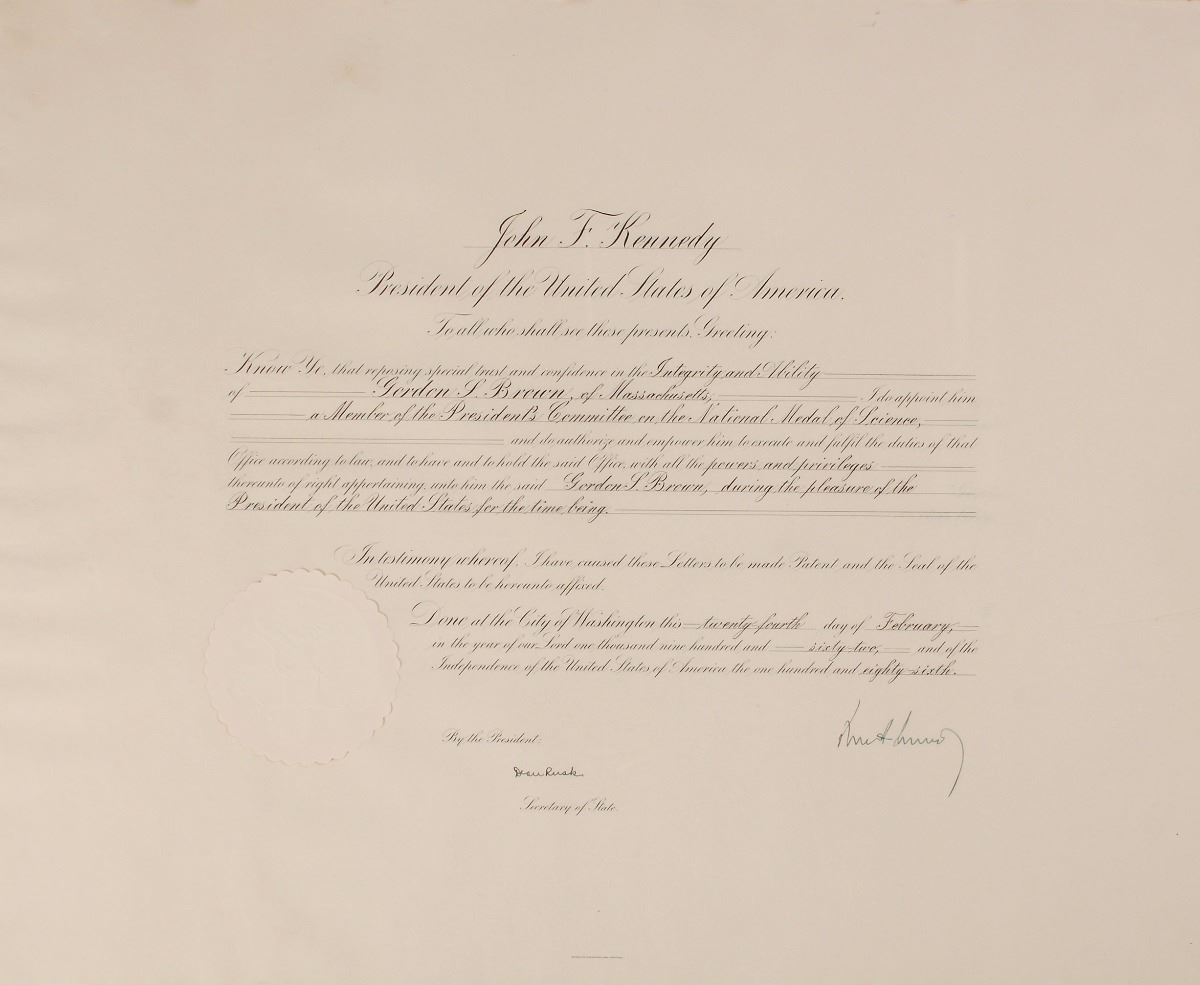 John F. Kennedy
President of the United States of America.
To all who shall see these presents, Greeting:
Know Ye, that reposing special trust and confidence in the Integrity and Ability
of Gordon S. Brown, of Massachusetts, I do appoint him
a Member of the President's Committee on the National Medal of Science,
and do authorize and empower him to execute and fulfil the duties of that
Office according to law, and to have and to hold the said Office, with all the powers and privileges
thereunto of right appertaining, unto him the said Gordon S. Brown, during the pleasure of the
President of the United States for the time being.
In testimony whereof, I have caused these Letters to be made Patent and the Seal of the
United States to be hereunto affixed.
Done at the City of Washington this twenty fourth day of February,
in the year of our Lord one thousand nine hundred and sixty-two, and of the
Independence of the United States of America the one hundred and eighty-sixth.
By the President:
Dean Rusk
Secretary of State.